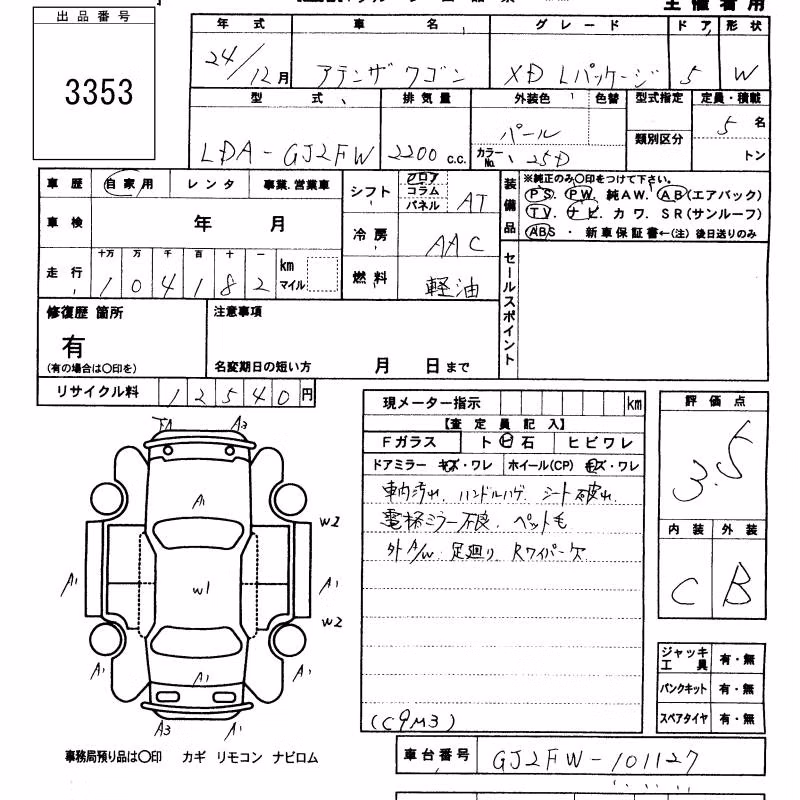 出品番号
3353
主催者用
年式 車名 グレード ドア 形状
24/12月 アテンザワゴン XD Lパッケージ 5 W
型式 排気量 外装色 色替 型式指定 定員・積載
類別区分
LDA-GJ2FW 2200 c.c. パール 5名
カラーNo. 25D トン
車歴 自家用 レンタ 事業.営業車
車検 年 月
走行 十万 万 千 百 十 一
104182 km マイル
シフト フロア コラム パネル AT
冷房 AAC
燃料 軽油
装備品
※純正のみ○印をつけて下さい。
PS. PW. 純AW. AB(エアバック)
TV. ナビ. カワ. SR(サンルーフ)
ABS ・ 新車保証書←(注)後日送りのみ
セールスポイント
修復歴 箇所
有
(有の場合は○印を)
注意事項
名変期日の短い方 月 日まで
リサイクル料 12540円
現メーター指示 km
【査定員記入】
Fガラス ト㊀石 ヒビワレ
ドアミラー キズ・ワレ ホイール(CP) キズ・ワレ
車内汚れ. ハンドルハゲ. シート破れ.
電格ミラー不良. ペット毛
外A/W 足廻り. Rワイパー欠
(C9M3)
評価点
3.5
内装 外装
C B
ジャッキ工具 有・無
パンクキット 有・無
スペアタイヤ 有・無
A3
A1
W2
A1 W1 A1
W2
A1 A1 A1
A3 A1
事務局預り品は○印 カギ リモコン ナビロム
車台番号 GJ2FW-101127